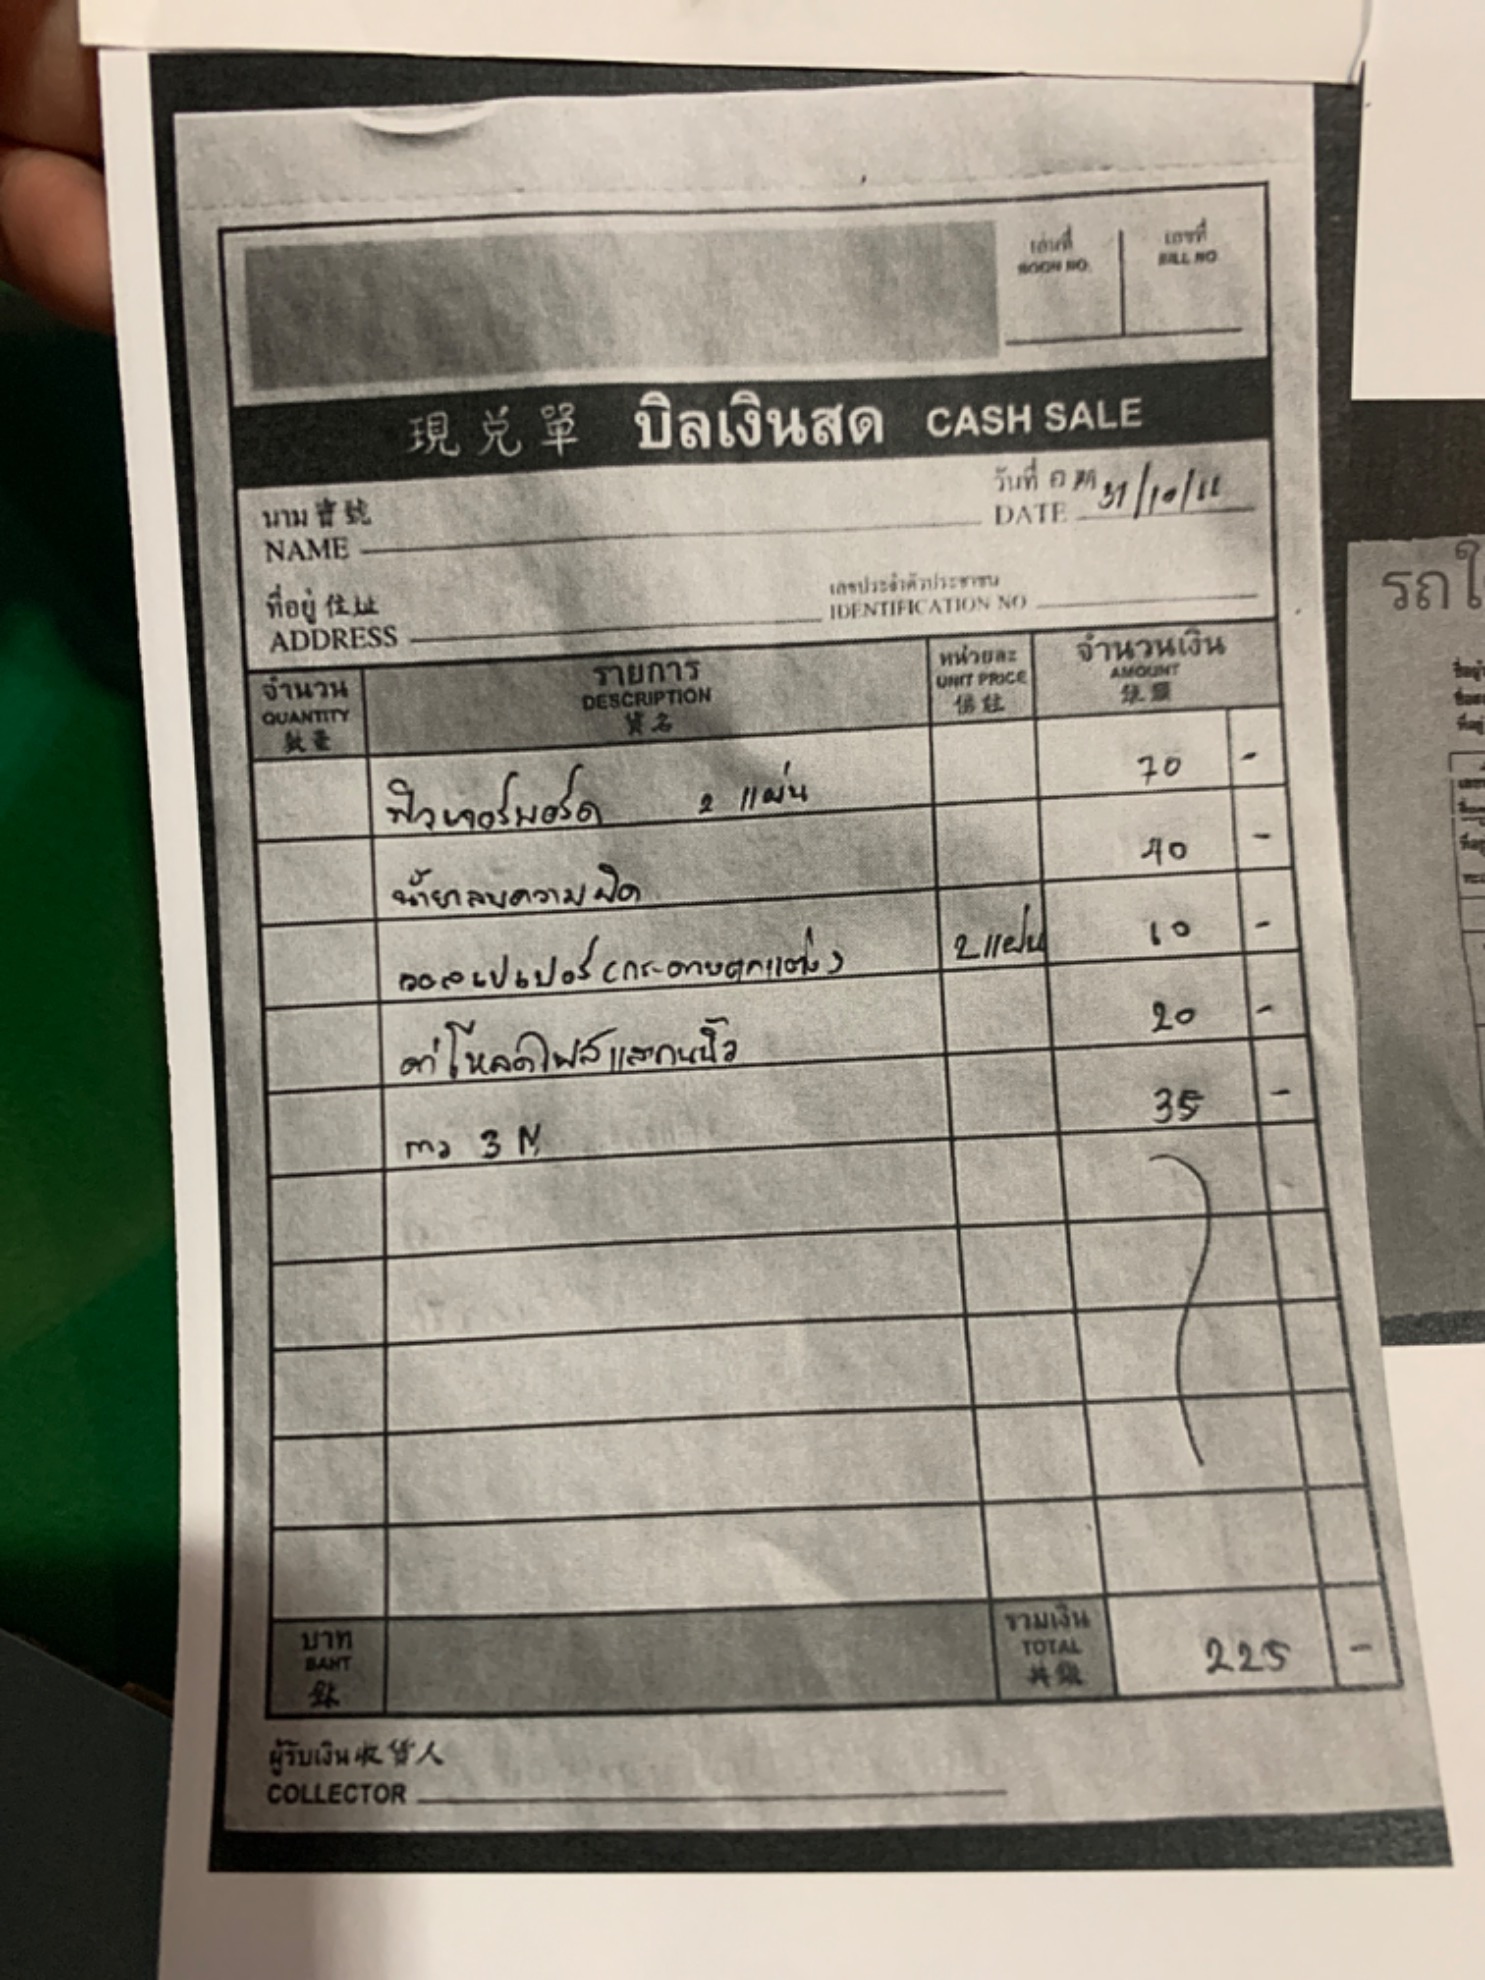 เล่มที่ เลขที่
BOOK NO. BILL NO
現兑單 บิลเงินสด CASH SALE
วันที่ 31/10/66
นาม 寶號 DATE
NAME
ที่อยู่ 住址 เลขประจำตัวประชาชน
ADDRESS IDENTIFICATION NO
จำนวน รายการ หน่วยละ จำนวนเงิน
QUANTITY DESCRIPTION UNIT PRICE AMOUNT
數量 貨名 價銀 銀碼
ฟิวเจอร์บอร์ด 2 แผ่น 70 -
น้ำยาลบความผิด 40 -
วอลเปเปอร์ (กระดาษตกแต่ง) 2 แผ่น 10 -
ค่าโหลดไฟล์สแกนนิ้ว 20 -
กาว 3 M 35 -
บาท รวมเงิน 225 -
BAHT TOTAL
銖
ผู้รับเงิน 收貨人
COLLECTOR
รถใ